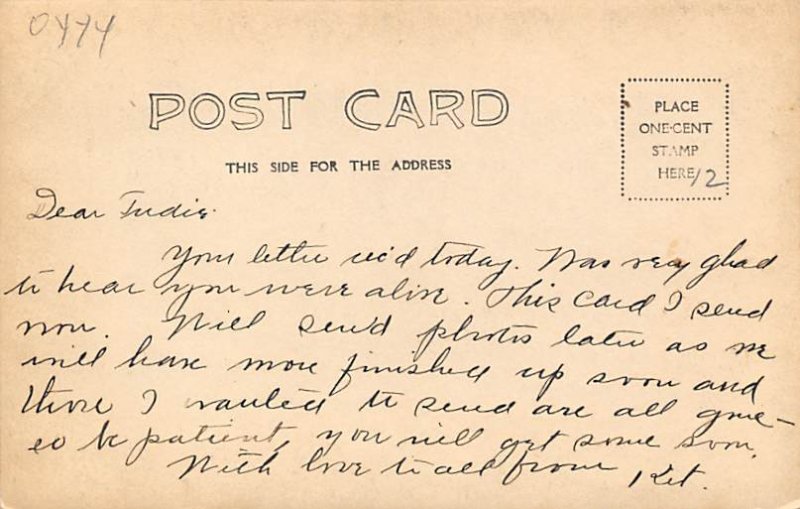 0474
POST CARD
THIS SIDE FOR THE ADDRESS
PLACE
ONE-CENT
STAMP
HERE 12
Dear
Your letter rec'd today. Was very glad
to hear you were alive. This card I send
now. Will send photos later as we
will have more finished up soon and
those I wanted to send are all gone—
so be patient, you will get some soon.
With love to all from